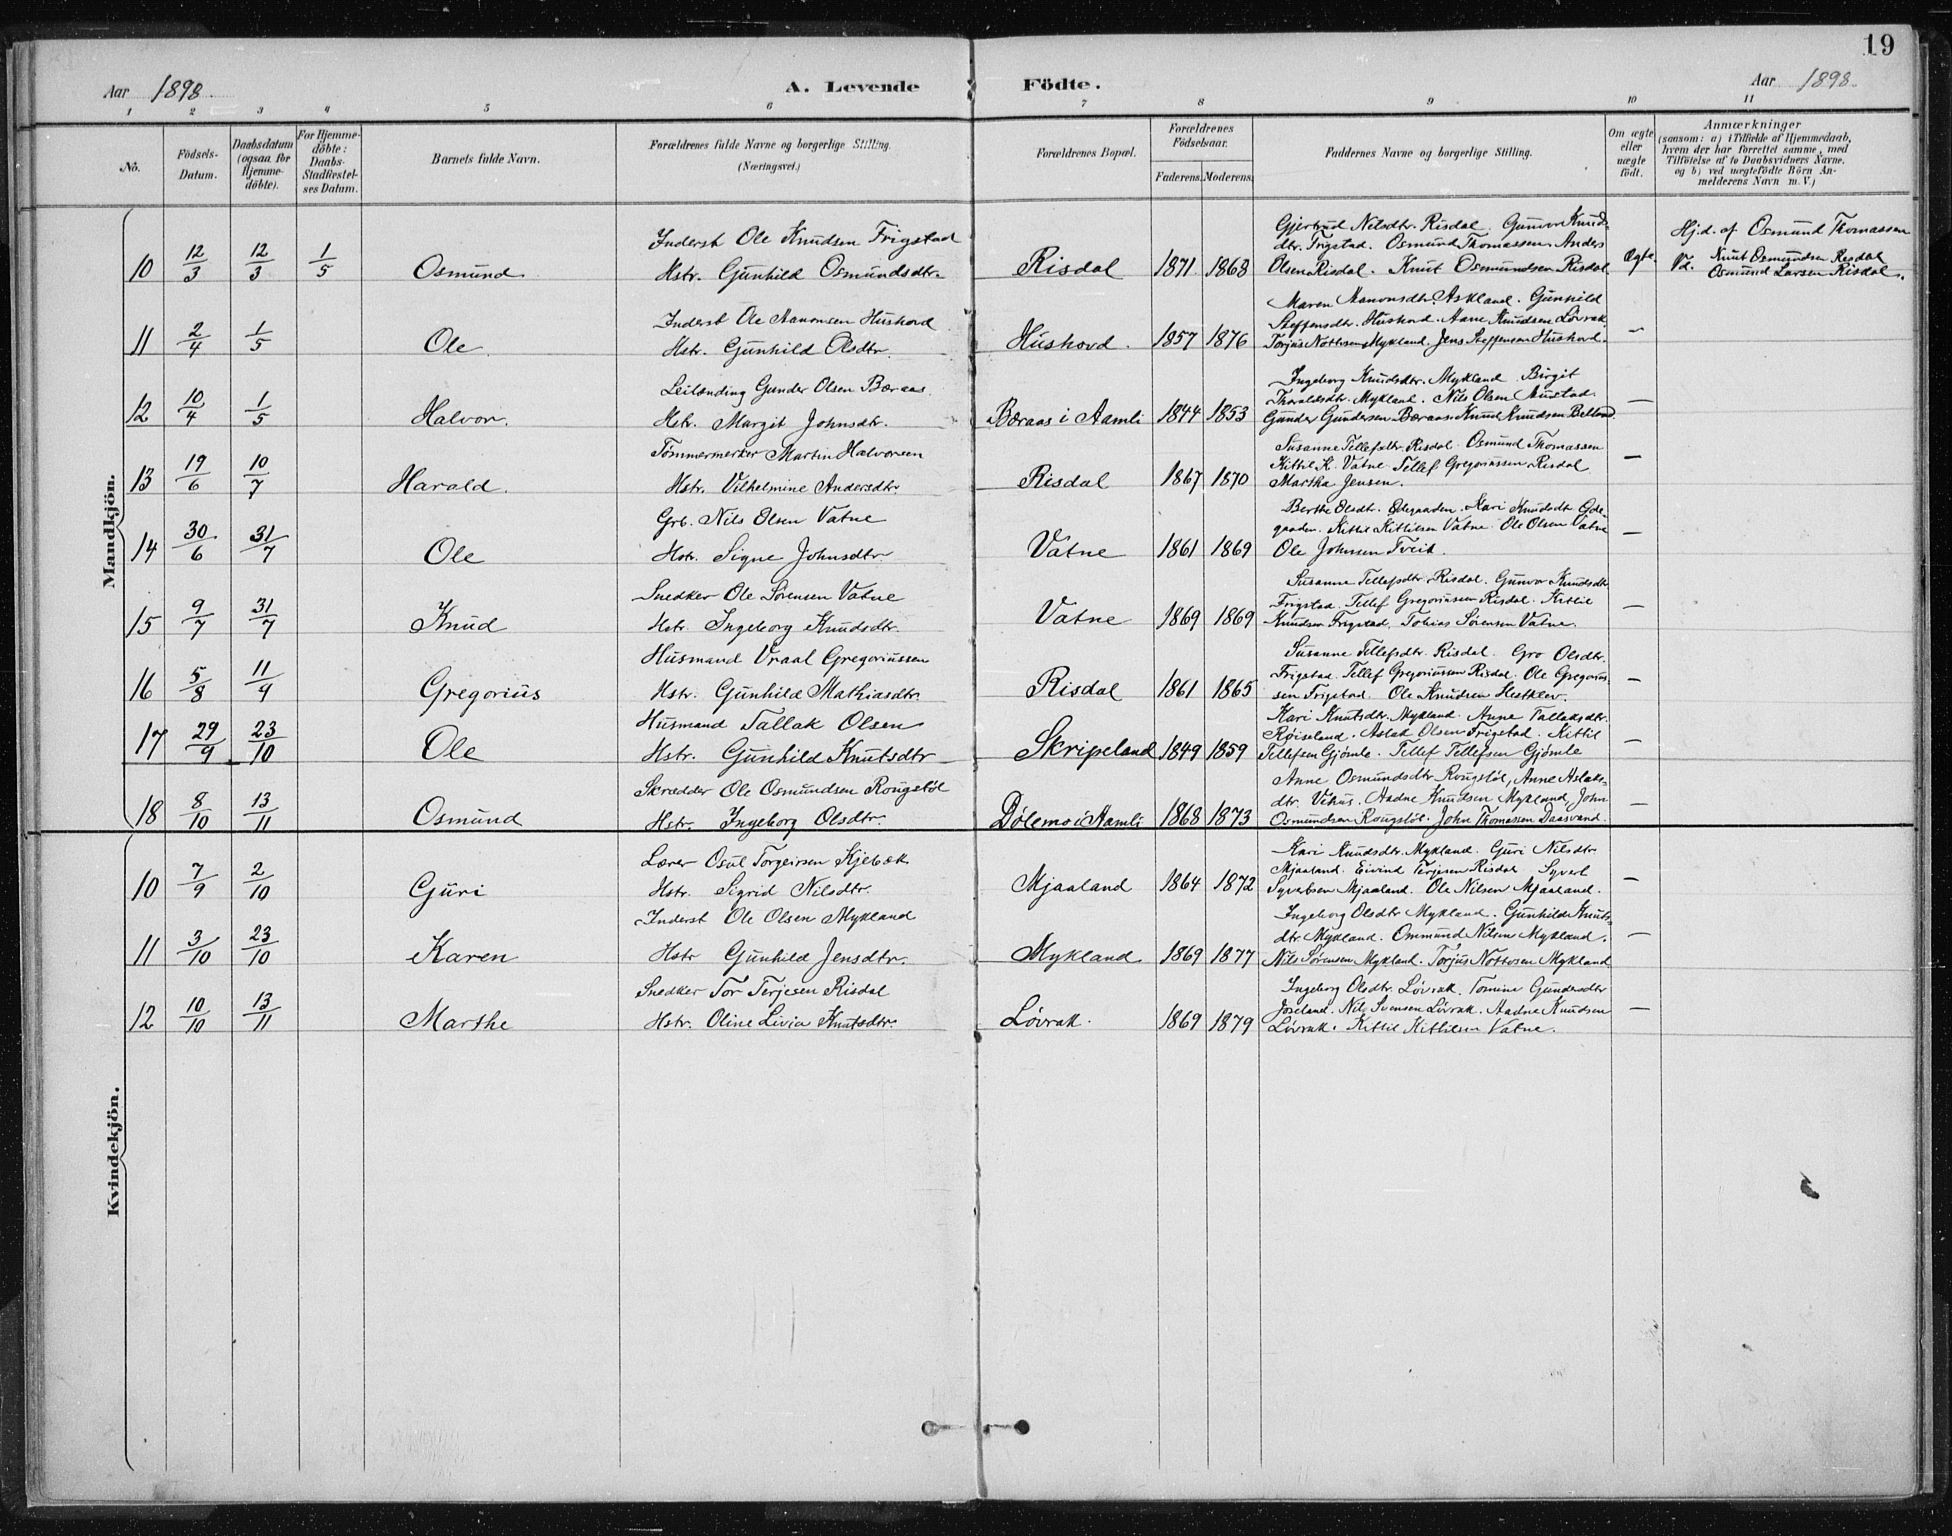 19
Aar 1898. A. Levende Födte. Aar 1898.
1 2 3 4 5 6 7 8 9 10 11
No.
Födsels-
Datum.
Daabsdatum
(ogsaa for
Hjemme-
döbte).
For Hjemme-
döbte:
Daabs-
Stadfæstel-
ses Datum.
Barnets fulde Navn.
Forældrenes fulde Navne og borgerlige Stilling.
(Næringsvei.)
Forældrenes Bopæl.
Forældrenes
Födselsaar.
Faderens. Moderens.
Faddernes Navne og borgerlige Stilling.
Om ægte
eller
uægte
födt.
Anmærkninger
(saasom: a) i Tilfælde af Hjemmedaab,
hvem der har forrettet samme, med
Tilföielse af to Daabsvidners Navne,
og b) ved uægtefödte Börn An-
melderens Navn m. V.)
Mandkjön.
10 12/3 12/3 1/5 Osmund
Inderst Ole Knudsen Frigstad
Hstr. Gunhild Osmundsdtr.
Risdal 1871 1868
Gjertrud Nilsdtr Risdal. Gunvor Knuds-
dtr. Frigstad. Osmund Thomassen. Anders
Olsen Risdal. Knut Osmundsen Risdal
Ægte.
Hj.d. af Osmund Thomassen
Vd. Knut Osmundsen Risdal
Osmund Larsen Risdal.
11 2/4 1/5 Ole
Inderst Ole Aanonsen Hushovd
Hstr. Gunhild Olsdtr.
Hushovd. 1857 1876
Maren Aanonsdtr. Askland. Gunhild
Steffensdtr. Hushovd. Aane Knudsen Lövrak
Torjus Nottesen Mykland. Jens Steffensen Hushovd.
—
12 10/4 1/5 Halvor.
Leilænding Gunder Olsen Bæraas
Hstr. Margit Johnsdtr.
Bæraas i Aamli 1844 1853
Ingeborg Knudsdtr. Mykland Birgit
Thoraldsdtr. Mykland. Nils Olsen
Gunder Gundersen Bæraas. Knud Knudsen
—
13 19/6 10/7 Harald.
Tömmermerker Martin Halvorsen
Hstr. Vilhelmine Andersdtr.
Risdal 1867 1870
Susanne Tellefsdtr. Risdal. Osmund Thomassen
Kittil K. Vatne. Tellef Gregoriussen Risdal
Martha Jensen.
—
14 30/6 31/7 Ole
Grb. Nils Olsen Vatne
Hstr. Signe Johnsdtr.
Vatne 1861 1869
Berthe Olsdtr. Ödegaarden. Kari Knudsdtr Öde-
gaarden. Kittil Kittilsen Vatne. Ole Olsen Vatne
Ole Johnsen Tveit.
—
15 9/7 31/7 Knud
Snedker Ole Sörensen Vatne
Hstr. Ingeborg Knudsdtr.
Vatne 1869 1869
Susanne Tellefsdtr. Risdal. Gunvor Knudsdtr
Frigstad. Tellef Gregoriussen Risdal. Kittil
Knudsen Frigstad. Tobias Sörensen Vatne.
—
16 5/8 11/9 Gregorius
Husmand Vraal Gregoriussen
Hstr. Gunhild Mathiasdtr.
Risdal 1861 1865
Susanne Tellefsdtr. Risdal. Gro Olsdtr.
Frigstad. Tellef Gregoriussen Risdal. Ole Gregorius-
sen Frigstad. Ole Knudsen Hestklev.
—
17 29/9 23/10 Ole
Husmand Tallak Olsen
Hstr. Gunhild Knutsdtr
Skripeland 1849 1859
Kari Knutsdtr. Mykland. Anne Tallaksdtr.
Röiseland. Aslak Olsen Frigstad. Kittil
Tellefsen Gjömle. Tellef Tellefsen Gjömle
—
18 8/10 13/11 Osmund
Skrædder Ole Osmundsen Rougstöl
Hstr. Ingeborg Olsdtr.
Dölemo i Aamli 1868 1873
Anne Osmundsdtr Rougstöl, Anne Aslaks-
dtr. Vehus. Aadne Knudsen Mykland, John
Osmundsen Rougstöl. John Thomassen Daasvand.
—
Kvindekjön.
10 7/9 2/10 Guri
Lærer Osul Torgeirsen Kjebæk
Hstr. Sigrid Nilsdtr.
Mjaaland 1864 1872
Kari Knudsdtr. Mykland. Guri Nilsdtr
Mjaaland. Eivind Terjesen Risdal Syvert
Syvertsen Mjaaland. Ole Nilsen Mjaaland.
—
11 3/10 23/10 Karen
Inderst Ole Olsen Mykland
Hstr Gunhild Jensdtr.
Mykland 1869 1877
Ingeborg Olsdtr Mykland. Gunhilde Knuts-
dtr. Mykland. Ommund Nilsen Mykland.
Nils Sörensen Mykland. Torjus Nottosen Mykland
—
12 10/10 13/11 Marthe
Snedker Tor Terjesen Risdal
Hstr. Oline Livia Knutsdtr.
Lövrak. 1869 1879
Ingeborg Olsdtr Lövrak. Tomine Gundersdtr
Jöreland. Nils Svensen Lövrak. Aadne Knudsen
Lövrak. Kittil Kittilsen Vatne.
—